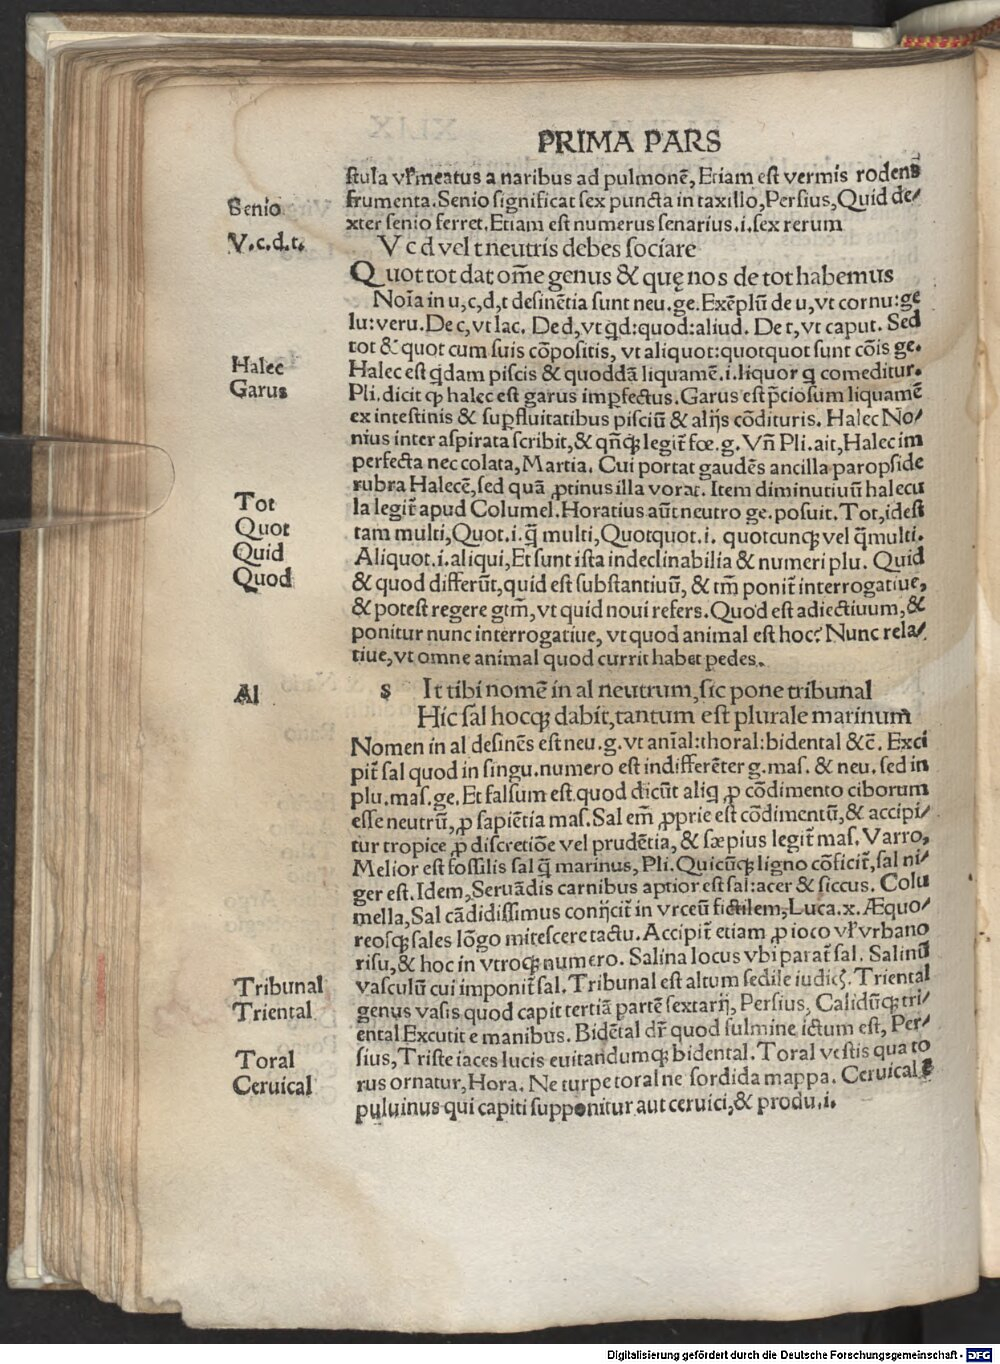 PRIMA PARS
ſtula vľ meatus a naribus ad pulmonē, Etiam eſt vermis rodens
Senio
frumenta. Senio ſignificat ſex puncta in taxillo, Perſius, Quid de/
xter ſenio ferret. Etiam eſt numerus ſenarius .i. ſex rerum
V.c.d.t.
V c d vel t neutris debes ſociare
Quot tot dat om̄e genus & quę nos de tot habemus
Noīa in u, c, d, t deſinētia ſunt neu. ge. Exēplū de u, vt cornu: ge
lu: veru. De c, vt lac. De d, vt qd: quod: aliud. De t, vt caput. Sed
tot & quot cum ſuis cōpoſitis, vt aliquot: quotquot ſunt cōis ge.
Halec
Halec eſt qdam piſcis & quoddā liquamē .i. liquor q comeditur.
Garus
Pli. dicit qꝫ halec eſt garus imꝑfectus. Garus eſt p̄cioſum liquamē
ex inteſtinis & ſuꝑfluitatibus piſciū & alijs cōdituris. Halec No/
nius inter aſpirata ſcribit, & qn̄qꝫ legit̄ fœ. g. Vn̄ Pli. ait, Halec im
perfecta nec colata, Martia. Cui portat gaudēs ancilla paropſide
rubra Halecē, ſed quā ꝓtinus illa vorat. Item diminutiuū halecu
Tot
la legit̄ apud Columel. Horatius aūt neutro ge. poſuit. Tot, ideſt
Quot
tam multi, Quot .i. q̄ multi, Quotquot .i. quotcunqꝫ vel q̄multi.
Quid
Aliquot .i. aliqui, Et ſunt iſta indeclinabilia & numeri plu. Quid
Quod
& quod differūt, quid eſt ſubſtantiuū, & tm̄ ponit̄ interrogatiue,
& poteſt regere gtm̄, vt quid noui refers. Quod eſt adiectiuum, &
ponitur nunc interrogatiue, vt quod animal eſt hoc? Nunc rela/
tiue, vt omne animal quod currit habet pedes.
Al
s It tibi nomē in al neutrum, ſic pone tribunal
Hic ſal hocqꝫ dabit, tantum eſt plurale marinum
Nomen in al deſinēs eſt neu. g. vt anīal: thoral: bidental &c̄. Exci
pit̄ ſal quod in ſingu. numero eſt indifferēter g. maſ. & neu. ſed in
plu. maſ. ge. Et falſum eſt quod dicūt aliq ꝓ cōdimento ciborum
eſſe neutrū, ꝓ ſapiētia maſ. Sal em̄ ꝓprie eſt cōdimentū, & accipi/
tur tropice ꝓ diſcretiōe vel prudētia, & ſæpius legit̄ maſ. Varro,
Melior eſt foſſilis ſal q̄ marinus, Pli. Quicūqꝫ ligno cōficit̄, ſal ni/
ger eſt. Idem, Seruādis carnibus aptior eſt ſal: acer & ſiccus. Colu
mella, Sal cādidiſſimus conijcit̄ in vrceū fictilem, Luca. x. Æquo/
reoſqꝫ ſales lōgo miteſcere tactu. Accipit̄ etiam ꝓ ioco vľ vrbano
riſu, & hoc in vtroqꝫ numero. Salina locus vbi parat̄ ſal. Salinū
Tribunal
vaſculū cui imponit̄ ſal. Tribunal eſt altum ſedile iudicꝫ. Triental
Triental
genus vaſis quod capit tertiā partē ſextarij, Perſius, Calidūqꝫ tri/
ental Excutit e manibus. Bidētal dr̄ quod fulmine ictum eſt, Per/
Toral
ſius, Triſte iaces lucis euitandumqꝫ bidental. Toral veſtis qua to
Ceruical
rus ornatur, Hora. Ne turpe toral ne ſordida mappa. Ceruical ē
puluinus qui capiti ſupponitur aut ceruici, & produ. i.
Digitalisierung gefördert durch die Deutsche Forschungsgemeinschaft - DFG